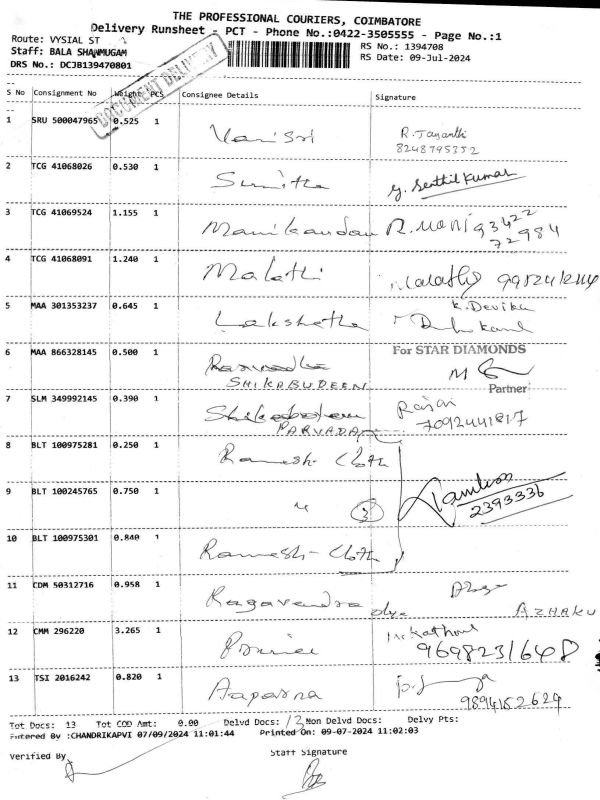 THE PROFESSIONAL COURIERS, COIMBATORE
Delivery Runsheet - PCT - Phone No.:0422-3505555 - Page No.:1
Route: VYSIAL ST
RS No.: 1394708
Staff: BALA SHANMUGAM
RS Date: 09-Jul-2024
DRS No.: DCJB139470801
DOCUMENT DELIVERY
S No Consignment No Weight PCS Consignee Details Signature
1 SRU 500047965 0.525 1 Harisri R. Jayanthi
8248795352
2 TCG 41068026 0.530 1 Sumitha y. Senthil Kumar
3 TCG 41069524 1.155 1 Manikandan R. Mani 93422
72984
4 TCG 41068091 1.240 1 Malathi Malathy
5 MAA 301353237 0.645 1 Lakshetha K. Devika
6 MAA 866328145 0.500 1 SHIKABUDEEN For STAR DIAMONDS
Partner
7 SLM 349992145 0.390 1 PARVADA Rajai
7092441817
8 BLT 100975281 0.250 1 Ramesh Cloth
9 BLT 100245765 0.750 1 " 3 2393336
10 BLT 100975301 0.840 1 Ramesh - Cloth
11 CDM 50312716 0.958 1 Ragavendra dye AZHAKU
12 CMM 296220 3.265 1
13 TSI 2016242 0.820 1 Aaparna
9894152624
Tot Docs: 13 Tot COD Amt: 0.00 Delvd Docs: 13 Non Delvd Docs: Delvy Pts:
Entered By :CHANDRIKAPVI 07/09/2024 11:01:44 Printed On: 09-07-2024 11:02:03
Verified By
Staff Signature